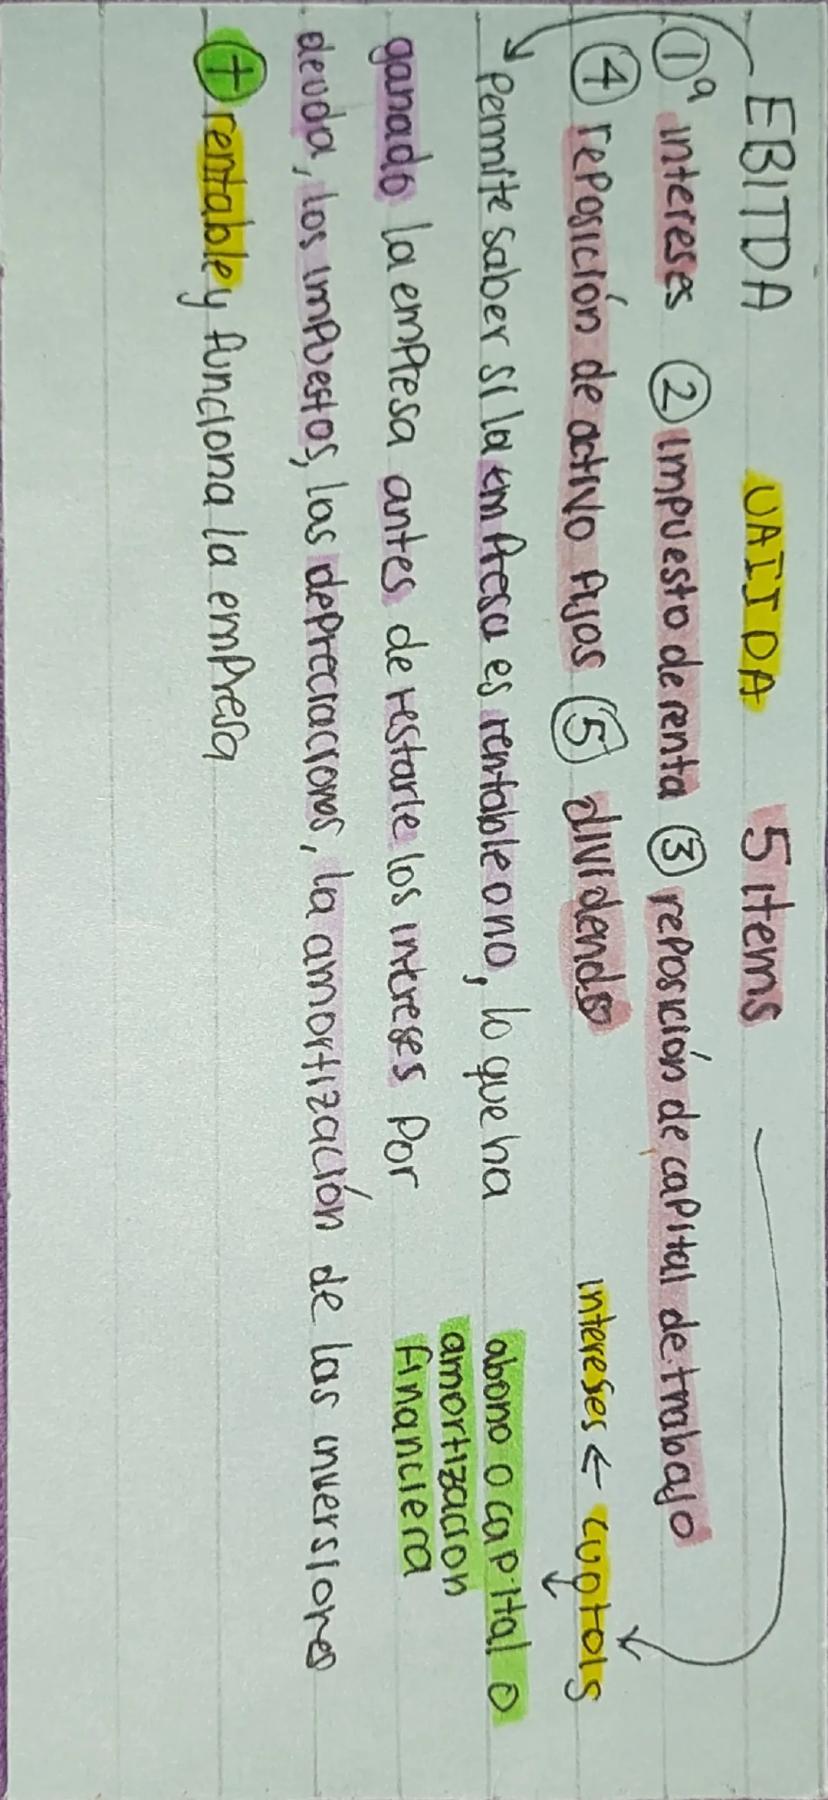 EBITDA UAIIDA 5 items
① a intereses ② impuesto de renta ③ reposición de capital de trabajo
④ reposición de activo fijos ⑤ dividendo
intereses ← cuotas
Permite saber si la empresa es rentable o no, lo que ha
abono o capital o
amortizacion
financiera
ganado la empresa antes de restarle los intereses por
deuda, los impuestos, las depreciaciones, la amortización de las inversiones
+ rentable y funciona la empresa